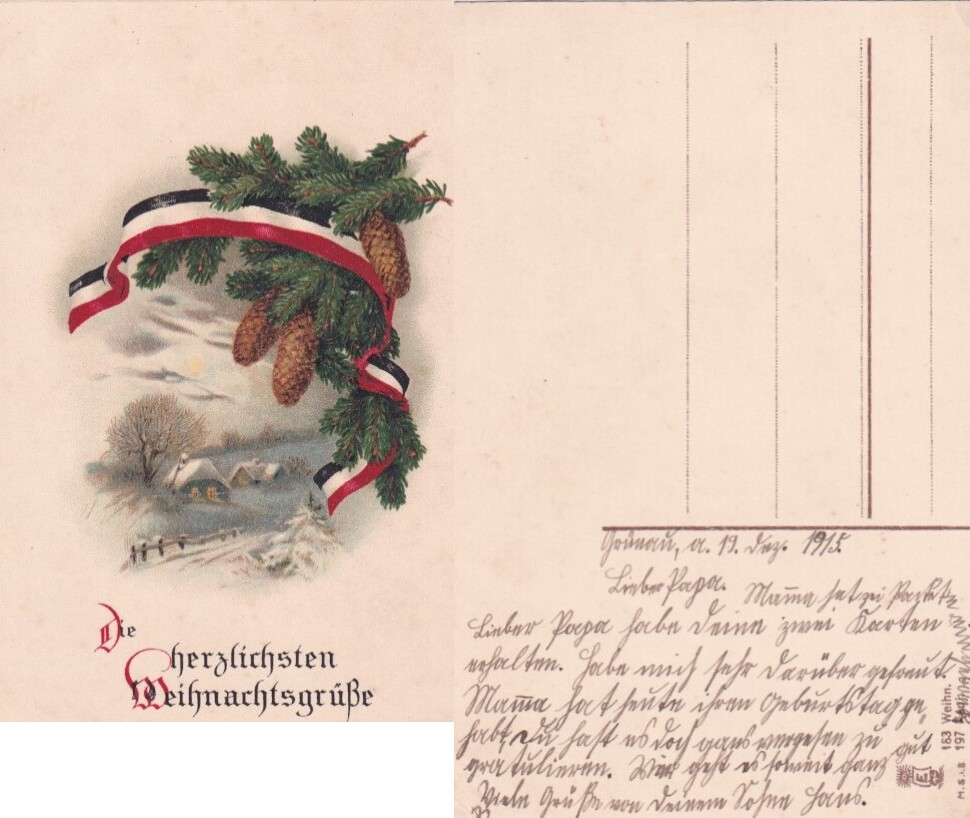 Die
herzlichsten
Weihnachtsgrüße
Grünau, a. 19. Dez. 1915.
Lieber Papa. Mama hat zwei Packt
Lieber Papa habe deine zwei Karten
erhalten. Habe mich sehr darüber gefreut.
Mama hat heute ihren Geburtstag ge-
habt, du hast es doch ganz vergesen zu
gratulieren. Mir geht es soweit ganz gut
Viele Grüße von deinem Sohne Hans.
183 Weihn.
197
M.S.i.B